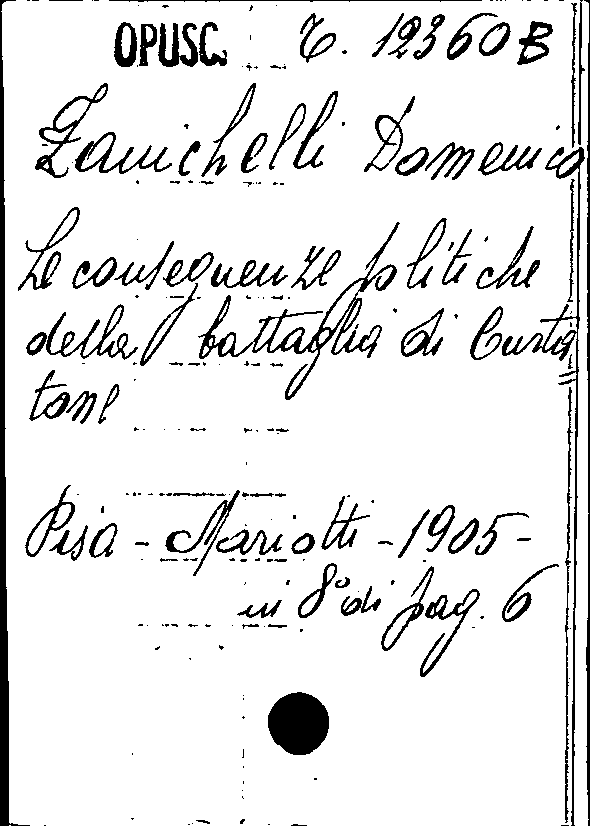 OPUSC. T. 12360 B
Zanichelli Domenico
Le conseguenze politiche
della battaglia di Curta=
tone
Pisa - Mariotti - 1905 -
in 8° di pag. 6